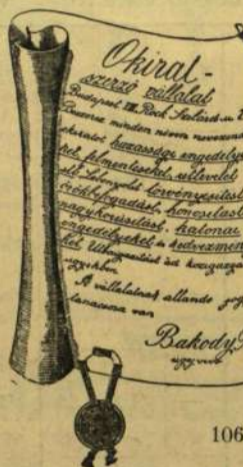 Okirat-
szerző vállalat
Budapest VII. Rock Szilárd-u.
minden néven nevezendő
okiratot házassági engedély
felmentéseket, útlevelet
törvényesítést
örökbefogadást, honosítást
nagykorúsítást, katonai
engedélyeket és kedvezmén
közigazga
ügyekben
A vállalatnak állandó jog
tanácsosa van
Bakody
ügyvéd
106